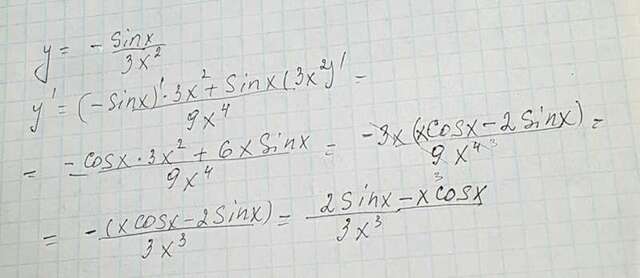 y = - sinx / 3x²
y' = ((-sinx)' · 3x² + sinx (3x²)') / 9x⁴ =
= (-cosx · 3x² + 6x sinx) / 9x⁴ = -3x (xcosx - 2sinx) / 9x⁴ ³ ₃ =
= -(xcosx - 2sinx) / 3x³ = (2sinx - xcosx) / 3x³